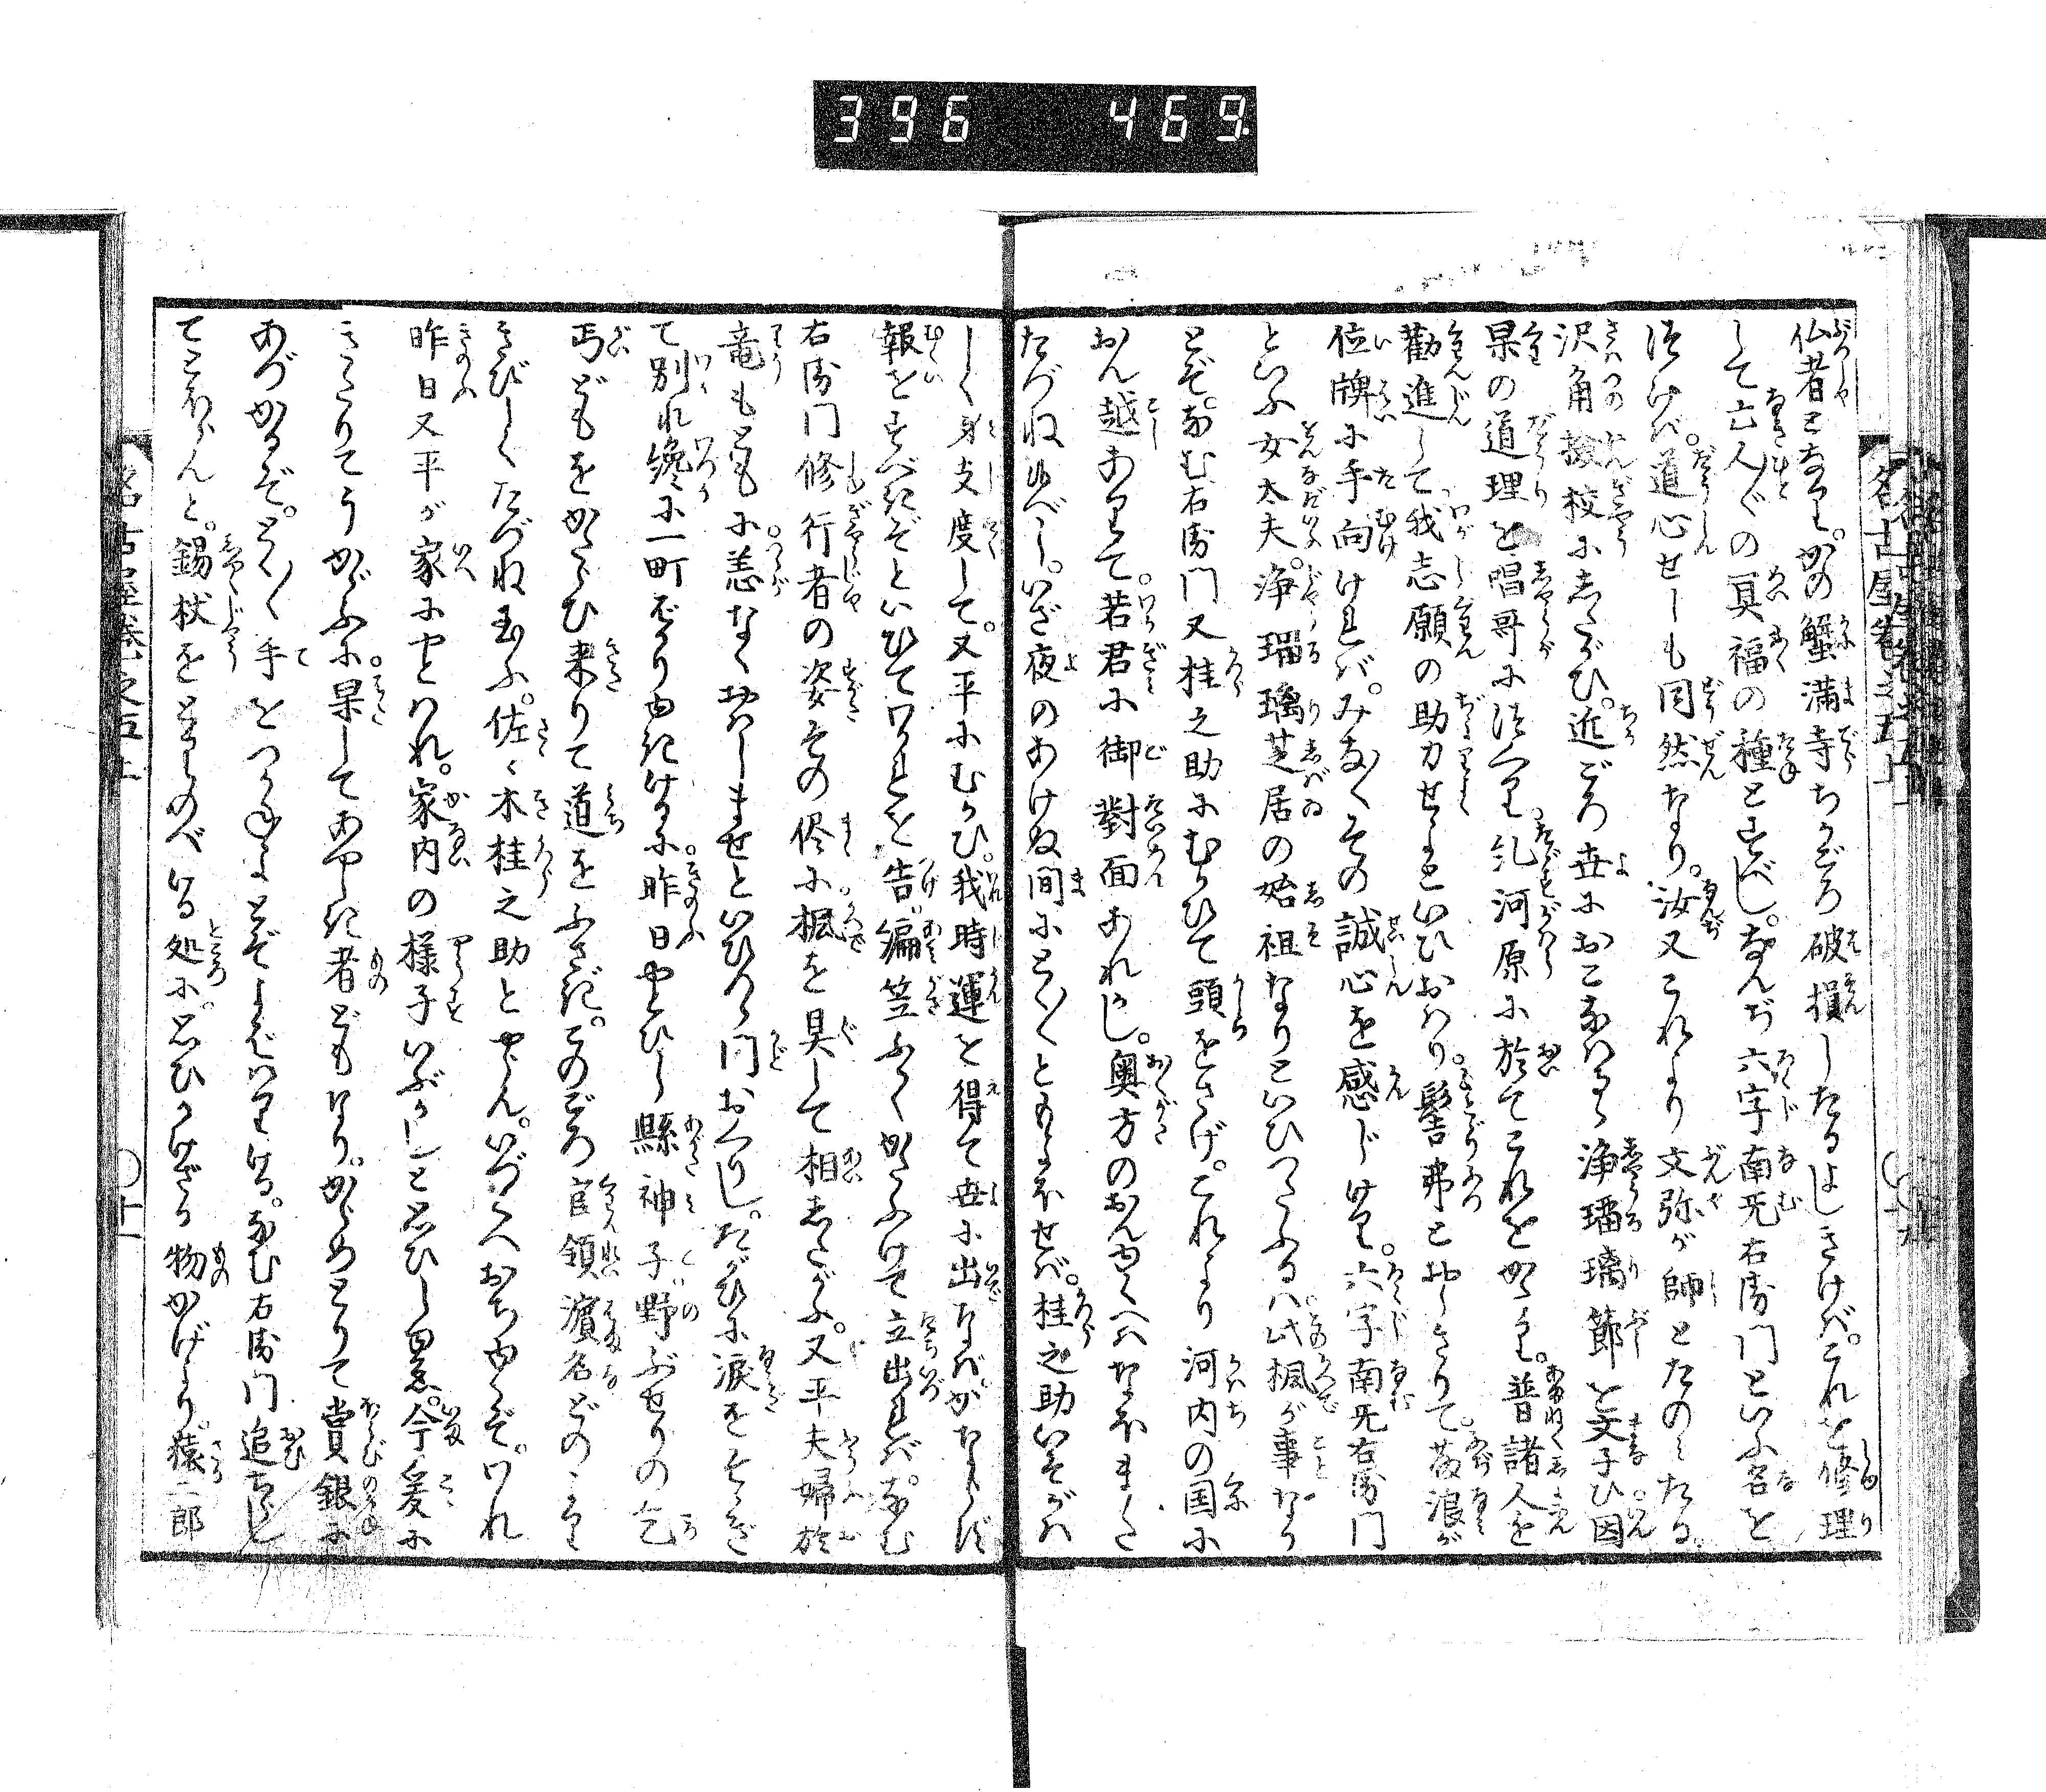 396 469
仏者となりぬ。かの蟹満寺ちかごろ破損したるよしきけば。これを修理
して亡人〴〵の冥福の種とすべし。なんぢ六字南无右衛門といふ名を
つけば。道心せしも同然なり。汝又これより文弥が師とたのみたる
沢角撿校にしたがひ。近ごろ世におこなはるゝ浄瑠璃節を文子ひ因
果の道理を唱哥につくり糺河原に於てこれをかたり。普諸人を
勧進して我志願の助力せよといひおはり。髻弗とおしきりて。藤浪が
位牌に手向ければ。みな〳〵その誠心を感じけり。六字南无右衛門
といふ女太夫。浄瑠璃芝居の始祖なりといひつたふるハ此楓が事なり
とぞ。なむ右衛門又桂之助にむかひて頭をさげ。これより河内の国に
おん越ありて。若君に御對面あれかし。奥方のおんゆくへハなほまた
たづね候べし。いざ夜のあけぬ間にとく〳〵ともよほせば。桂之助いそがハ
しく身支度して。又平にむかひ。我時運を得て世に出なば。かならず
報をすべきぞといひてわかれを告。編笠ふかくかたふけて立出れば。なむ
右衛門修行者の姿その侭に楓を具して相したがふ。又平夫婦於
竜もともに恙なくおはしませといひつゝ門おくりし。たがひに涙をそゝぎ
て別れ纔に一町ばかりゆきけるに。昨日やとひし縣神子野ぶせりの乞
丐どもをかたらひ来りて道をふさぎ。このごろ官領濱名どのより
きびしくたづね玉ふ。佐々木桂之助とやらん。いづくへおちゆくぞ。われ
昨日又平が家にやとはれ。家内の様子いぶかしと思ひし黒。今爰に
きたりてうかゞふに。果してあやしき者どもなり。からめとりて賞銀に
あづかるぞ。とく〳〵手をつかねよとぞよばはりける。なむ右衛門追ちらし
てとほらんと。錫杖をとりのべける処に。思ひかけざる物かげより。猿二郎
名古屋巻之五上